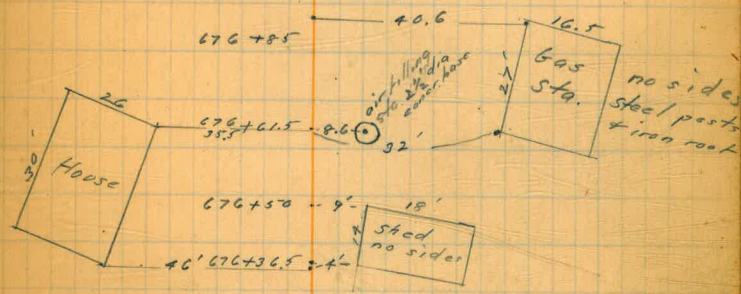 40.6
16.5
676 + 85
Gas
Sta.
27'
no sides
steel posts
+ iron roof
air filling
sta 2 1/2' dia
concr. base
26
676 + 61.5
35.5
8.6
32'
30'
House
676 + 50
9'
18'
shed
no sides
46'
676 + 36.5
4'